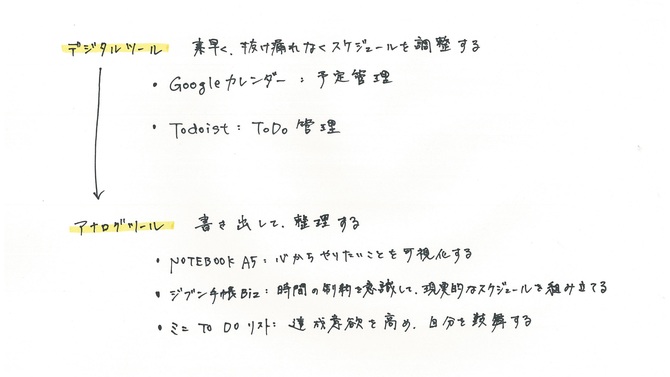 デジタルツール 素早く、抜け漏れなくスケジュールを調整する
・Googleカレンダー：予定管理
・Todoist：ToDo管理
アナログツール 書き出して、整理する
・NOTEBOOK A5：心からやりたいことを可視化する
・ジブン手帳Biz：時間の制約を意識して、現実的なスケジュールを組み立てる
・ミニ To Do リスト：達成意欲を高め、自分を鼓舞する